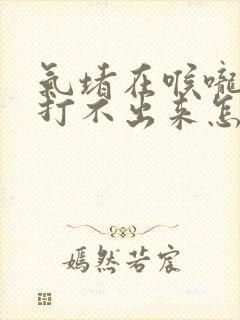 氣堵在喉嚨
打不出来怎
嫣然若宸